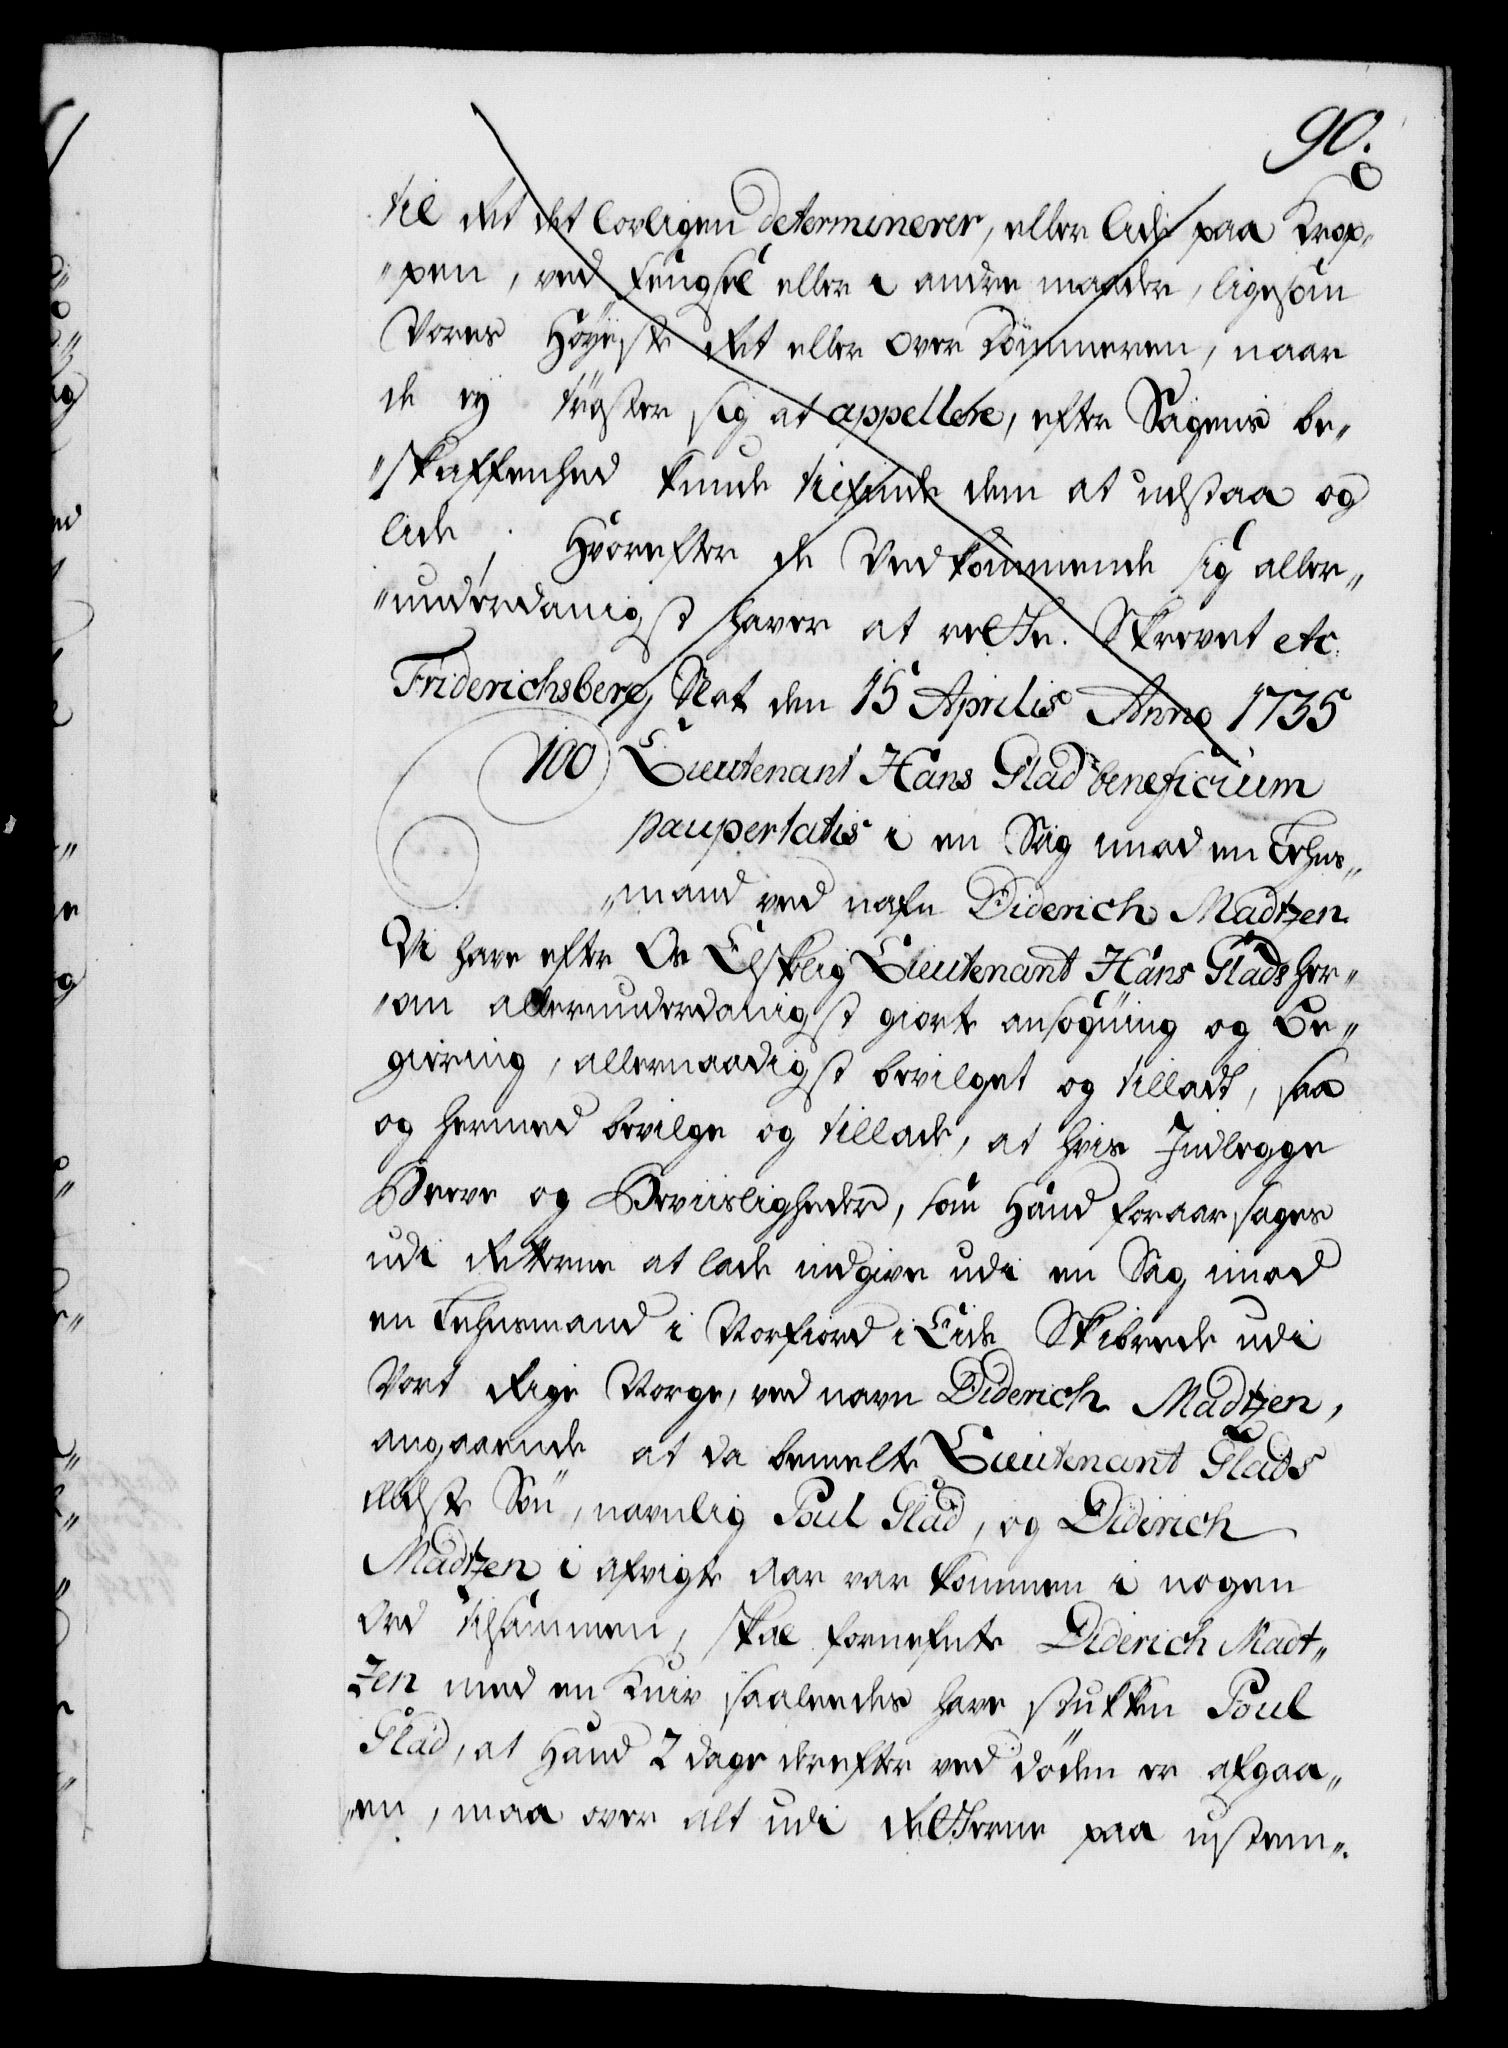 90.
til det det lovligen determinerer, eller lide paa Krop„
„pen, ved Fengsel eller i andre maader, ligesom
Vores Höyeste Ret eller Over Dommeren, naar
de ey tröster sig at appellere, efter Sagens be„
„skaffenhed kunde tilfinde dem at udstaa og
lide. Hvorefter de Vedkommende sig aller„
„underdanigst haver at rette. Skrevet etc.
Friderichsberg Slot den 15 Aprilis Anno 1735
100 Lieutenant Hans Glad beneficium
paupertatis i en Sag imod en Lehns„
„mand ved nafn Diderich Madtzen.
Vi have efter Os Elskelig Lieutenant Hans Glads her„
„om allerunderdanigst giorte ansögning og Be„
giering, allernaadigst bevilget og tilladt, saa
og hermed bevilge og tillade, at hvis Indlegge
Breve og Beviisligheder, som Hand foraarsages
udi Retterne at lade indgive udi en Sag imod
en Lehnsmand i Norfiord i Eide Skibrede udi
Vort Rige Norge, ved navn Diderich Madtzen,
angaaende at da bemelte Lieutenant Glads
eldste Sön, navnlig Poul Glad, og Diderich
Madtzen i afvigte Aar var kommen i nogen
Ord tilsammen, skal fornefnte Diderich Madt„
zen med en Kniv saaledes have stukken Poul
Glad, at Hand 2 dage derefter ved döden er afgaa„
„en, maa over alt udi Retterne paa ustem„